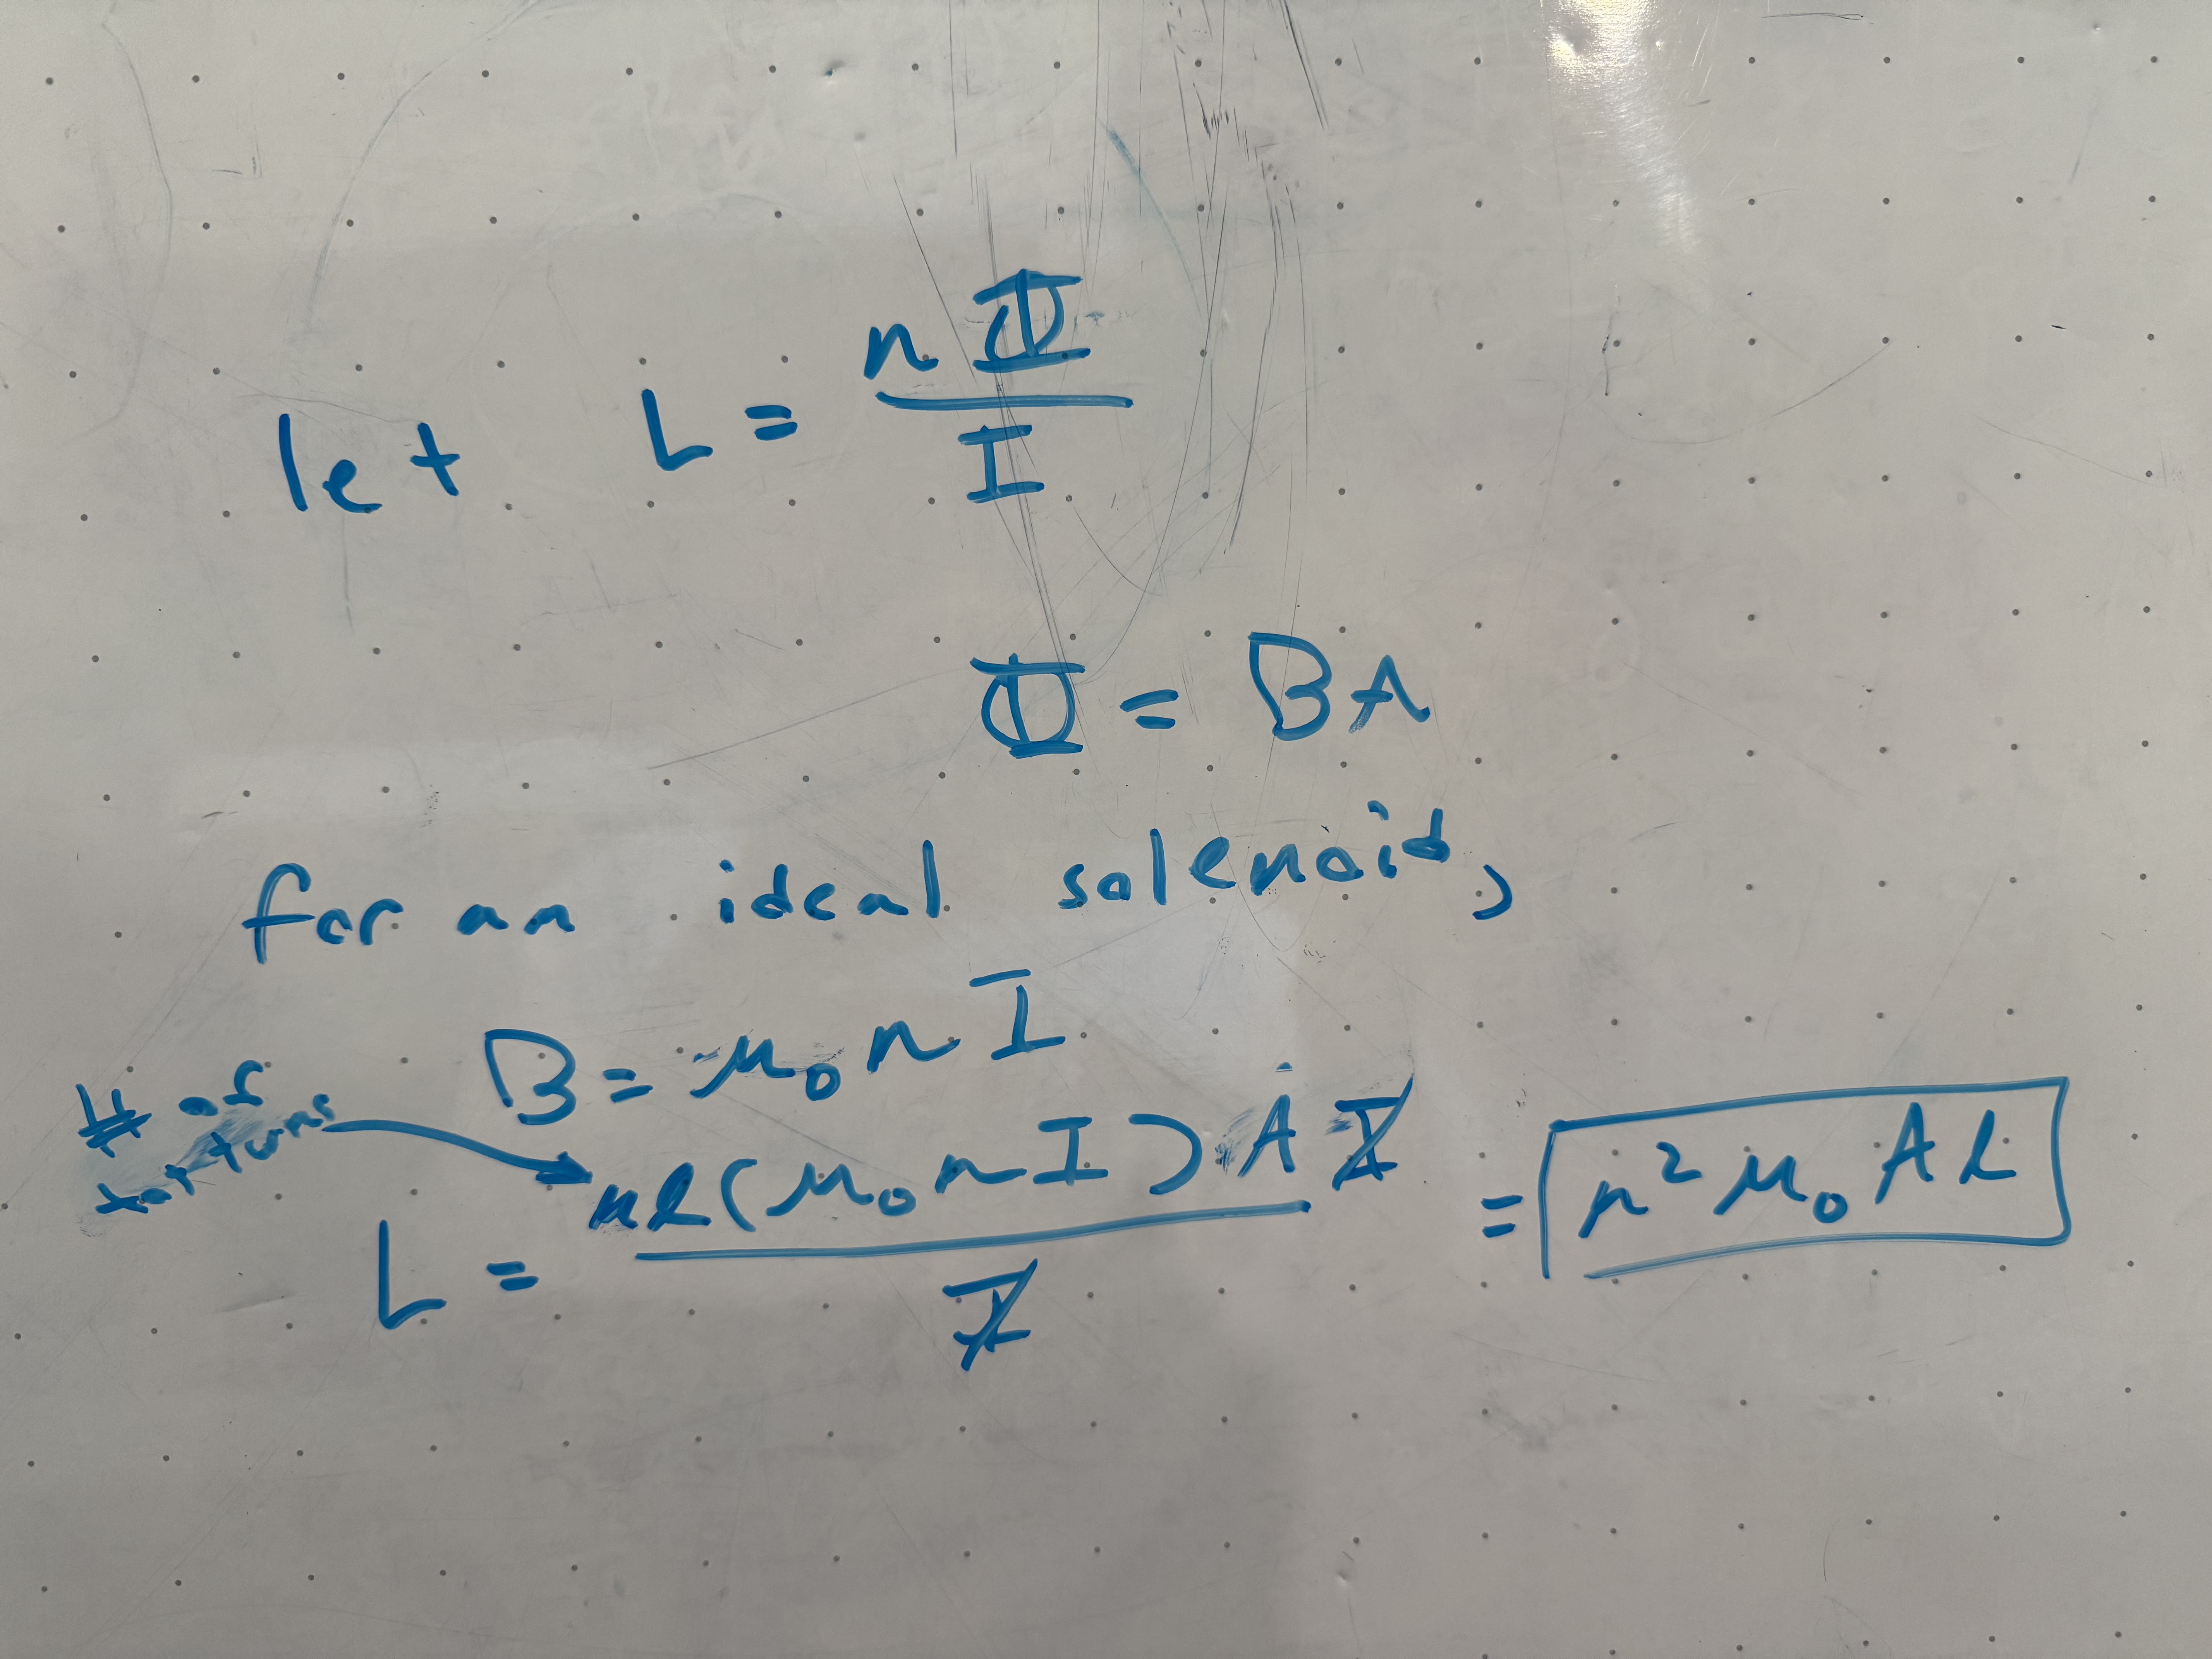 let L = nΦ / I
Φ = BA
for an ideal solenoid,
B = μ₀ n I
# of
turns
L = nl(μ₀ n I) A I / I = n² μ₀ A l